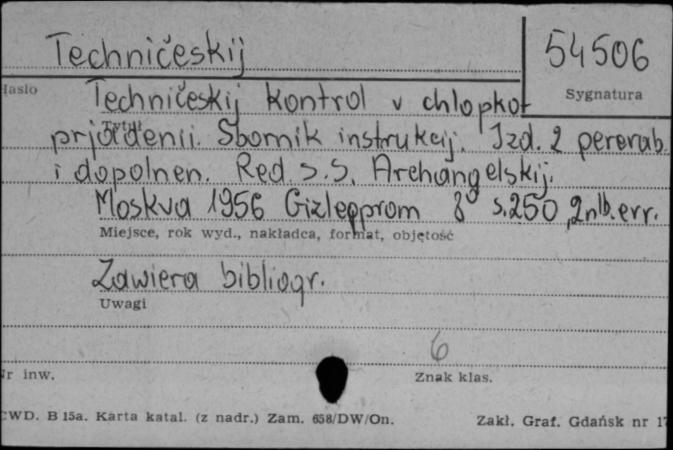 Techničeskij
54506
Hasło
Sygnatura
Techničeskij kontrol v chlopkot
prjadenii. Sbornik instrukcij. Izd. 2 pererab.
i dopolnen. Red. S.S. Archangelskij.
Moskva 1956 Gizlegprom 8° s.250, 2nlb. err.
Miejsce, rok wyd., nakładca, format, objętość
Zawiera bibliogr.
Uwagi
6
Nr inw.
Znak klas.
CWD. B 15a. Karta katal. (z nadr.) Zam. 658/DW/On.
Zakł. Graf. Gdańsk nr 1